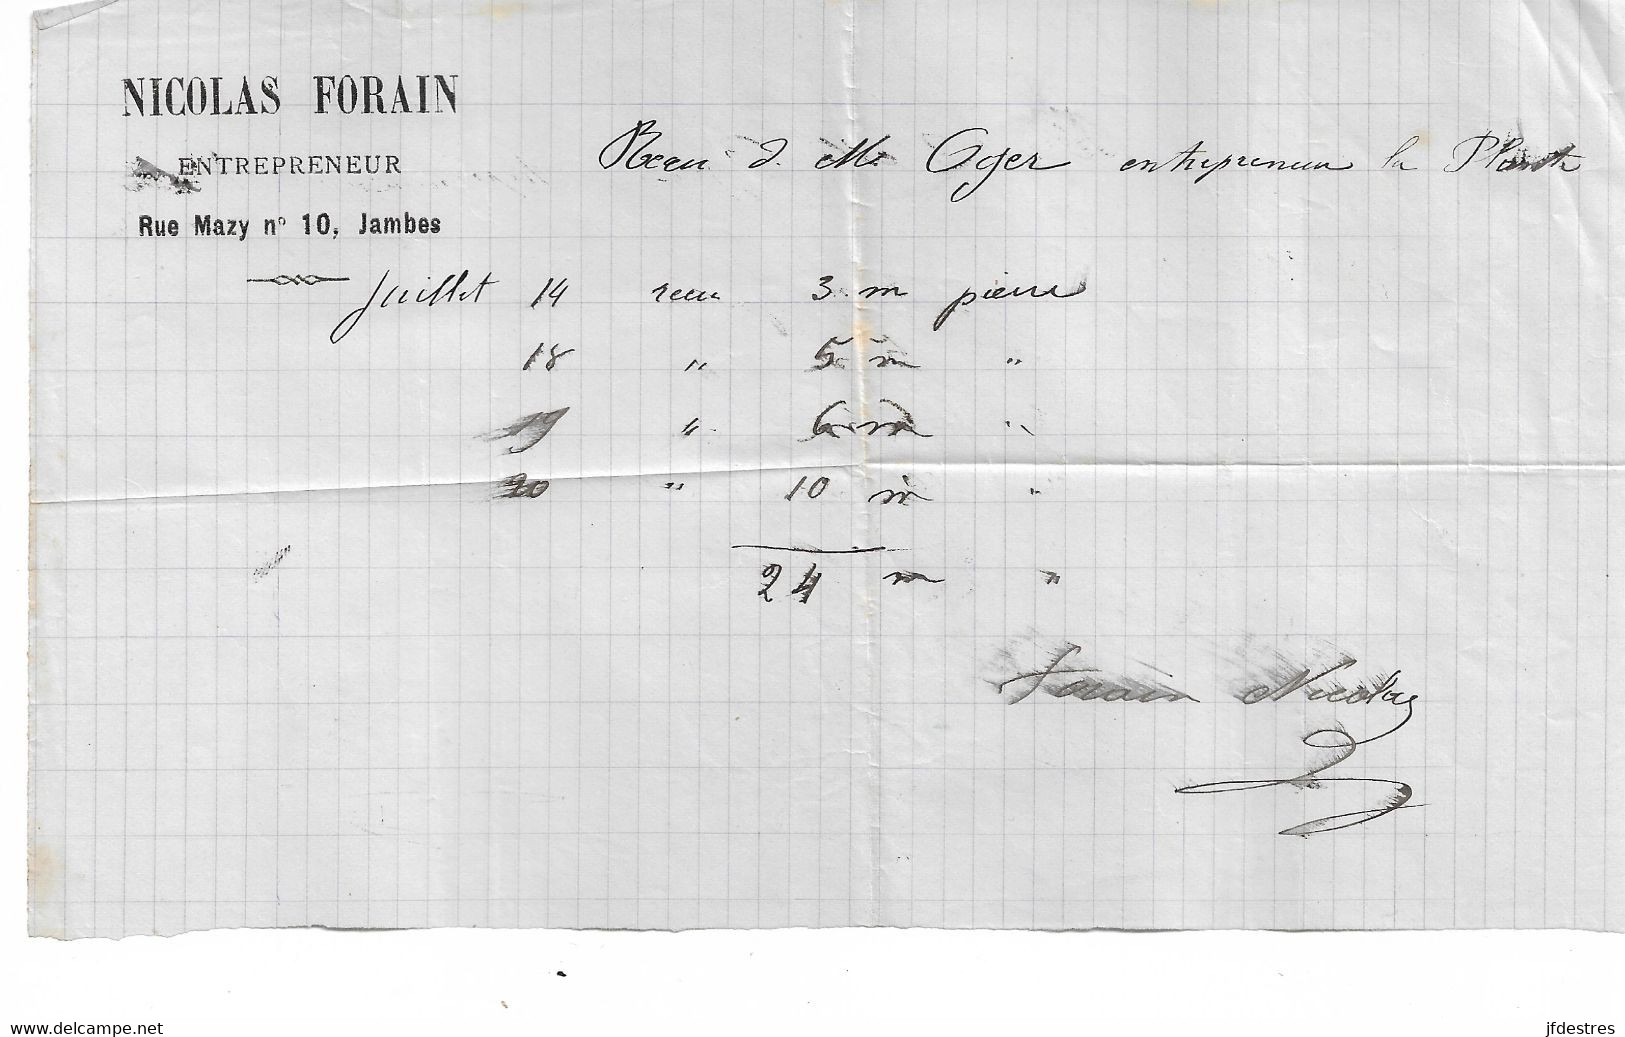 NICOLAS FORAIN
ENTREPRENEUR
Rue Mazy n° 10, Jambes
Recu d. Mr Oger entrepreneur la Plante
Juillet 14 recu 3 m pierre
18 " 5 m "
19 " 6 m "
20 " 10 m "
24 m "
Forain Nicolas
www.delcampe.net
jfdestres